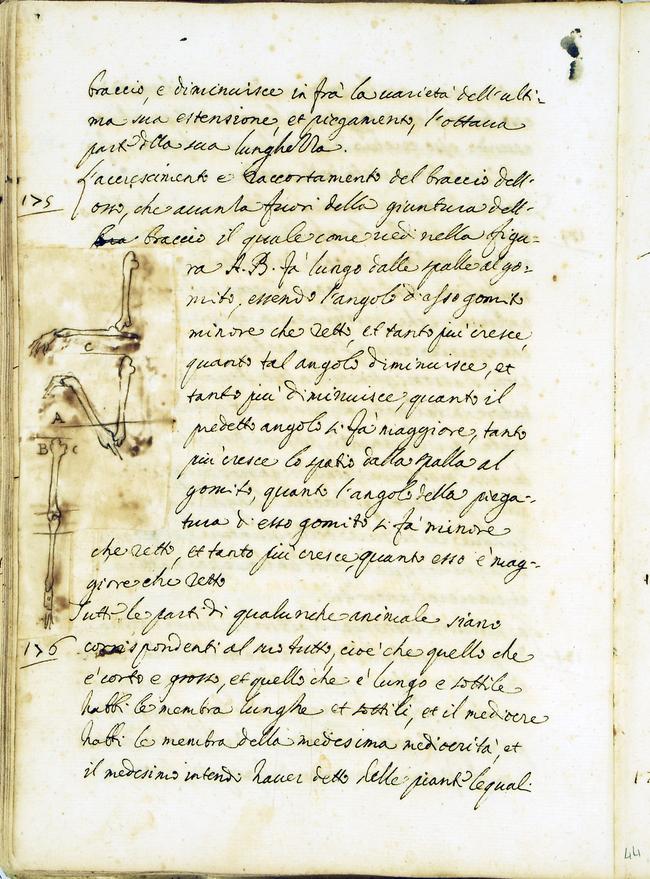 braccio, e diminuisce in frà la uarietà dell'ulti-
ma sua estensione, et piegamento, l'ottaua
parte della sua lunghezza.
175
l'accrescimento e raccortamento del braccio dell'
osso, che auanza fuori della giuntura dell
braccio il quale come uedi nella figu-
ra A.B. fà lungo dalle spalle al go-
mito, essendo l'angolo d'esso gomito
minore che retto, et tanto piu' cresce,
quanto tal angolo diminuisce, et
tanto piu' diminuisce, quanto il
predetto angolo si fà maggiore, tanto
piu' cresce lo spatio dalla spalla al
gomito, quanto l'angolo della piega-
tura di esso gomito si fà minore
che retto, et tanto piu' cresce, quanto esso è mag-
giore che retto
C
A
B C
A
176
Tutte le parti di qualunche animale siano
corrispondenti al suo tutto, cioè che quello che
è corto e grosso, et quello che è lungo e sottile
habbi le membra lunghe et sottili, et il mediocre
habbi le membra della medesima mediocrità, et
il medesimo intendo hauer detto delle piante lequali
44